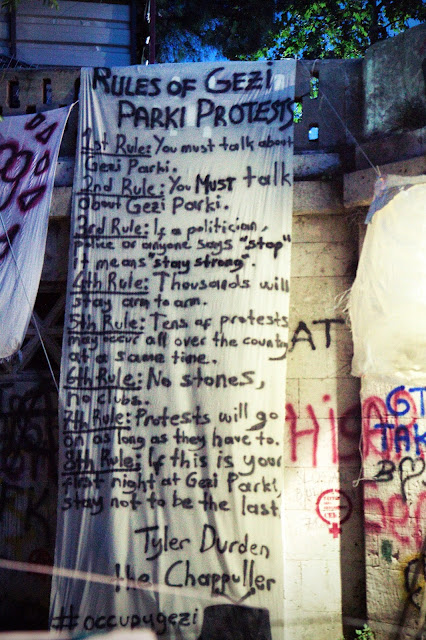 RULES OF GEZI
PARKI PROTESTS
1st Rule: You must talk about
Gezi Parki.
2nd Rule: You MUST talk
about Gezi Parki.
3rd Rule: If a politician,
police or anyone says "stop"
it means "stay strong".
4th Rule: Thousands will
stay arm to arm.
5th Rule: Tens of protests
may occur all over the country
at a same time.
6th Rule: No stones,
no clubs.
7th Rule: Protests will go
on as long as they have to.
8th Rule: If this is your
first night at Gezi Parki,
stay not to be the last
Tyler Durden
the Chappuller
#occupygezi
AT
HISA
TAK